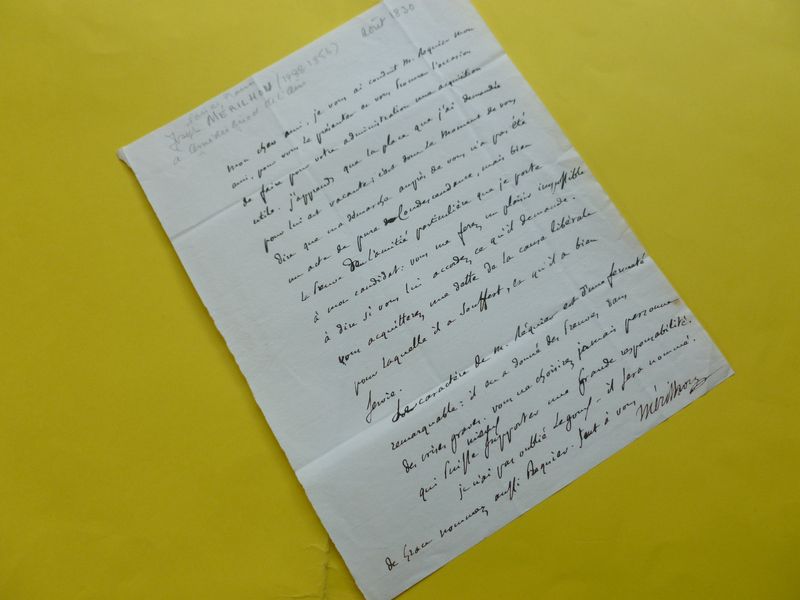 août 1830
Joseph MÉRILHOU (1788-1856)
à
mon cher ami, je vous ai conduit m. Requier mon
ami, pour vous le présenter et vous procurer l'occasion
de faire pour votre administration une acquisition
utile. j'apprends que la place que j'ai demandée
pour lui est vacante; c'est donc le moment de vous
dire que ma démarche auprès de vous n'a pas été
un acte de pure condescendance, mais bien
la preuve de l'amitié particulière que je porte
à mon candidat: vous me ferez un plaisir impossible
à dire si vous lui accordez ce qu'il demande.
vous acquitterez une dette de la cause libérale
pour laquelle il a souffert, et qu'il a bien
servie.
Le caractère de m. Requier est d'une fermeté
remarquable: il en a donné des preuves, dans
des crises graves. vous ne choisirez jamais personne
qui puisse mieux supporter une grande responsabilité.
je n'ai pas oublié Legouf - il sera nommé.
de grace nommez aussi Requier. tout à vous
Mérilhou